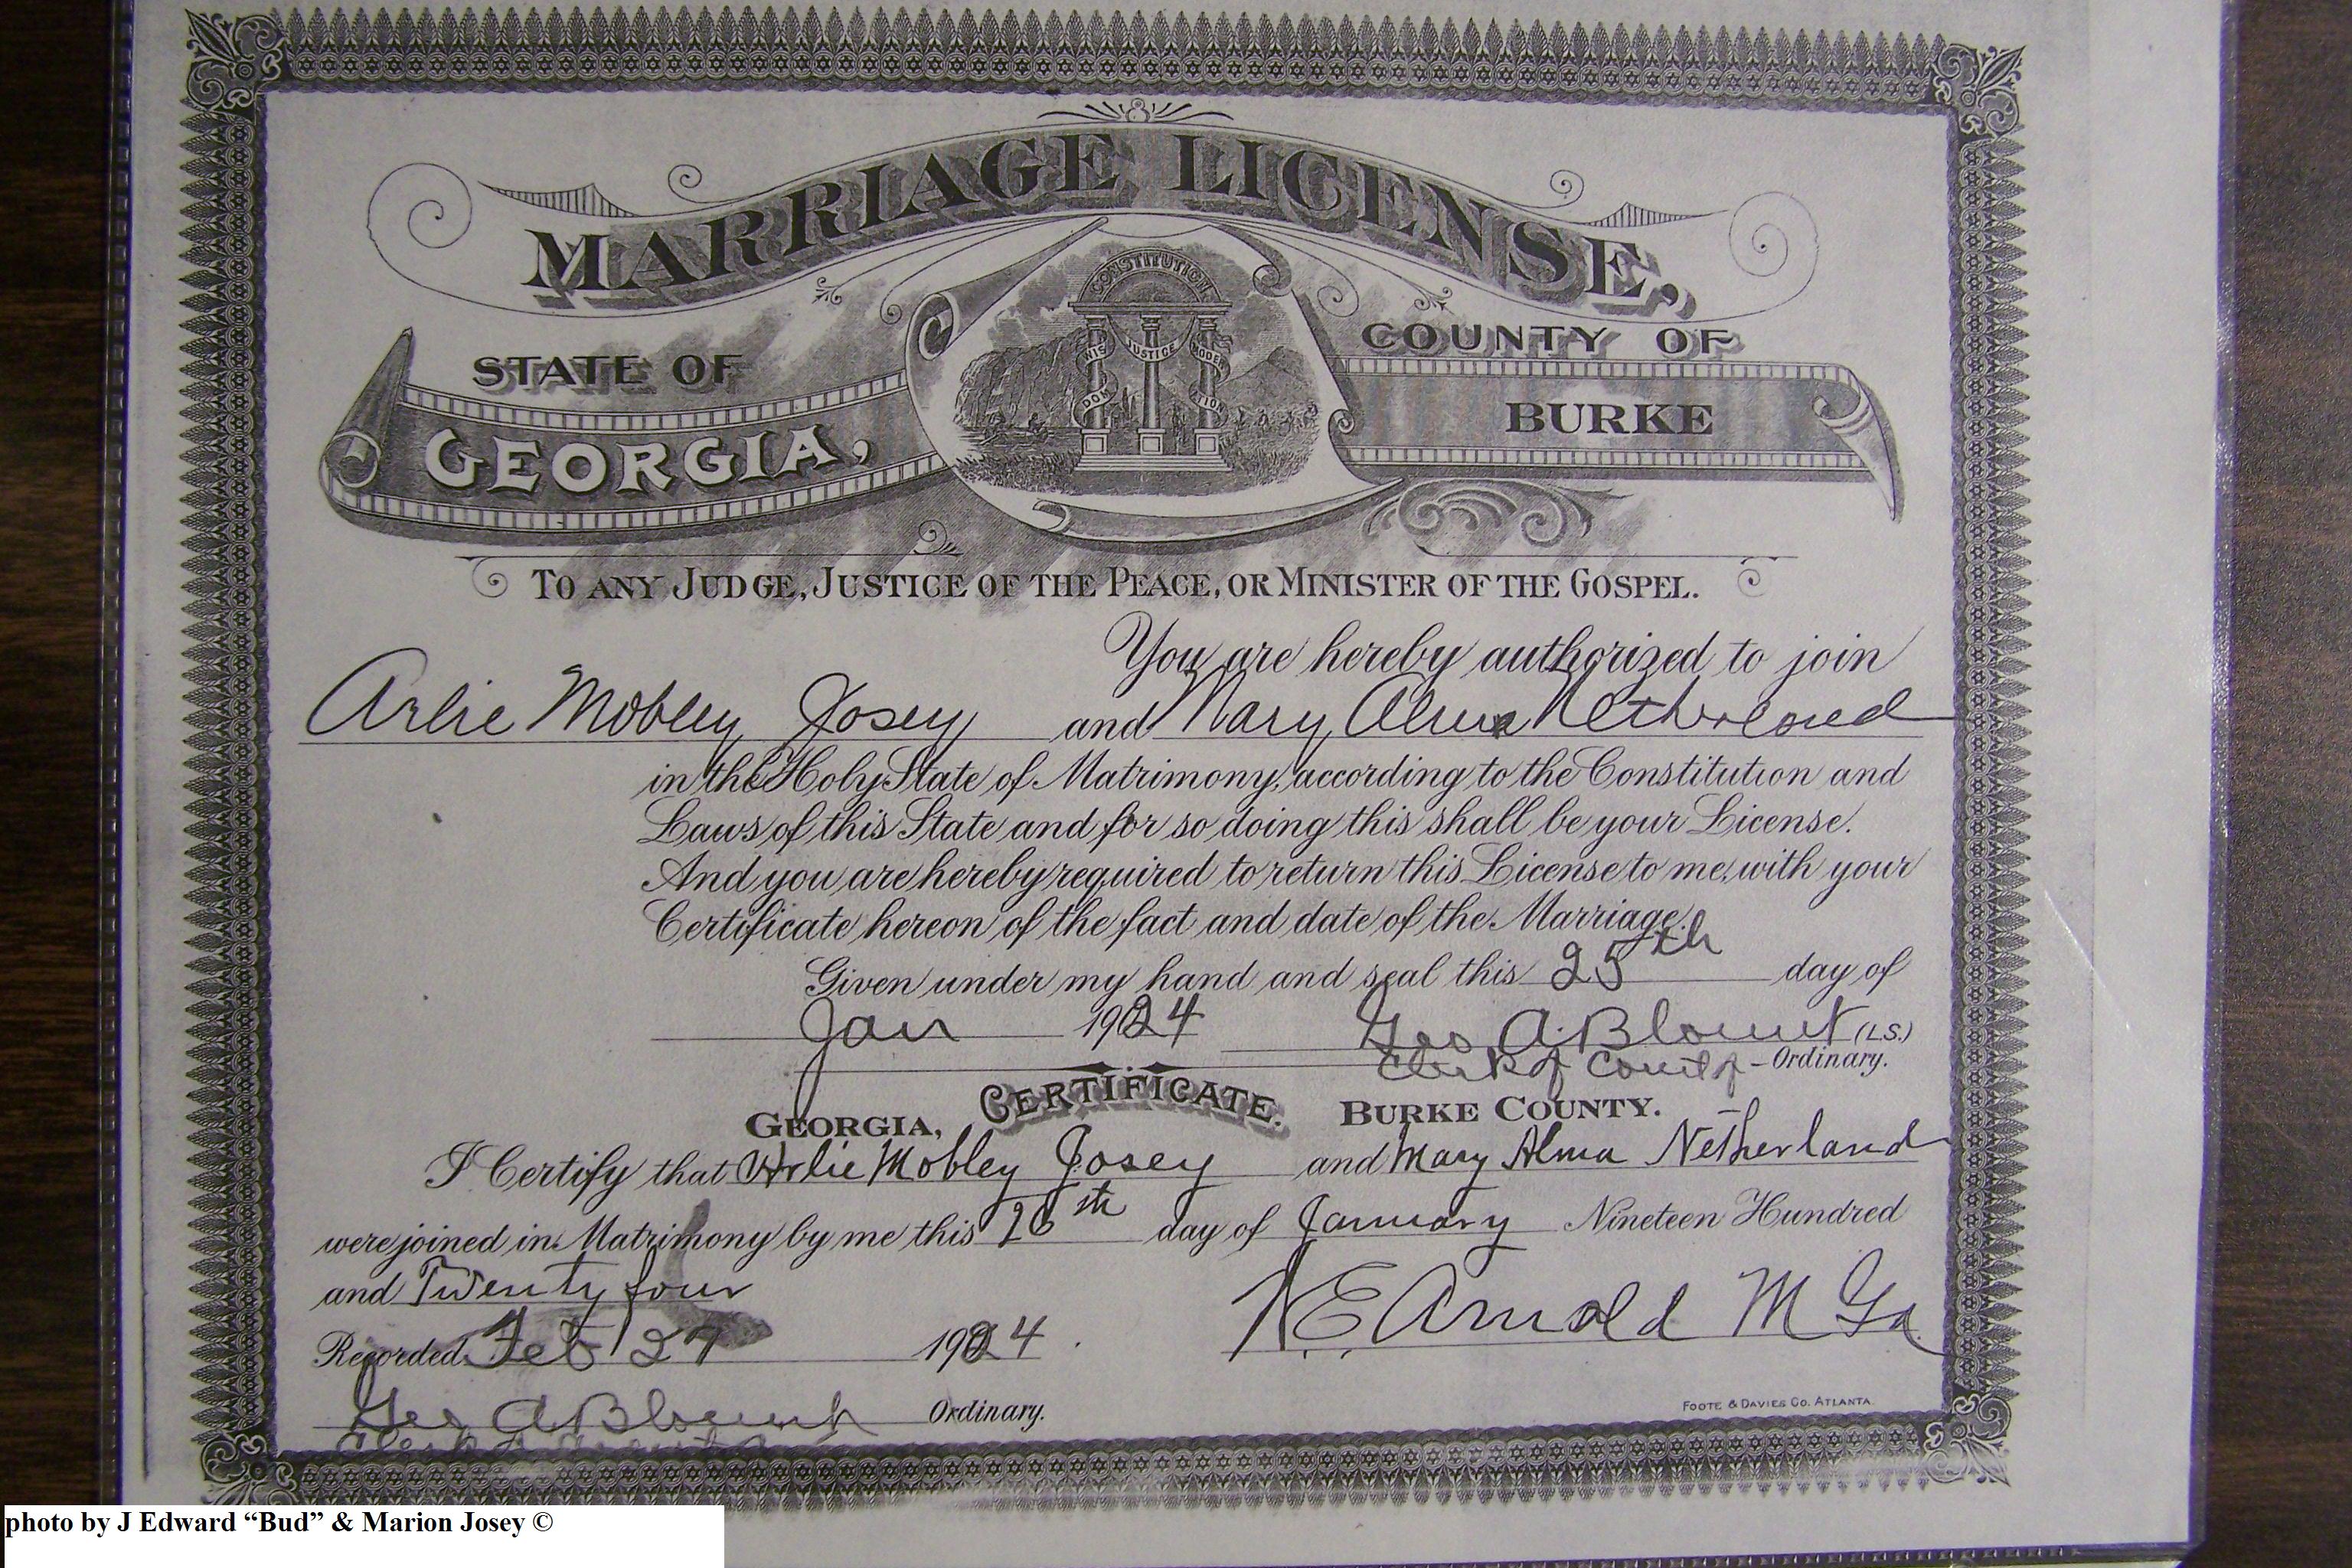 MARRIAGE LICENSE,
CONSTITUTION
WIS DOM JUSTICE MODER ATION
STATE OF
GEORGIA,
COUNTY OF
BURKE
TO ANY JUDGE, JUSTICE OF THE PEACE, OR MINISTER OF THE GOSPEL.
You are hereby authorized to join
Arlie Mobley Josey and Mary Alma Netherland
in the Holy State of Matrimony, according to the Constitution and
Laws of this State and for so doing this shall be your License.
And you are hereby required to return this License to me, with your
Certificate hereon of the fact and date of the Marriage.
Given under my hand and seal this 25th day of
Jan 1924 Geo A. Blount (L.S.)
Clerk of Court of Ordinary.
CERTIFICATE.
GEORGIA, BURKE COUNTY.
I Certify that Arlie Mobley Josey and Mary Alma Netherland
were joined in Matrimony by me this 26th day of January Nineteen Hundred
and Twenty four
N. E. Arnold M G
Recorded Feb 27 1924.
Geo A Blount Ordinary.
Clerk
FOOTE & DAVIES CO. ATLANTA.
photo by J Edward “Bud” & Marion Josey ©